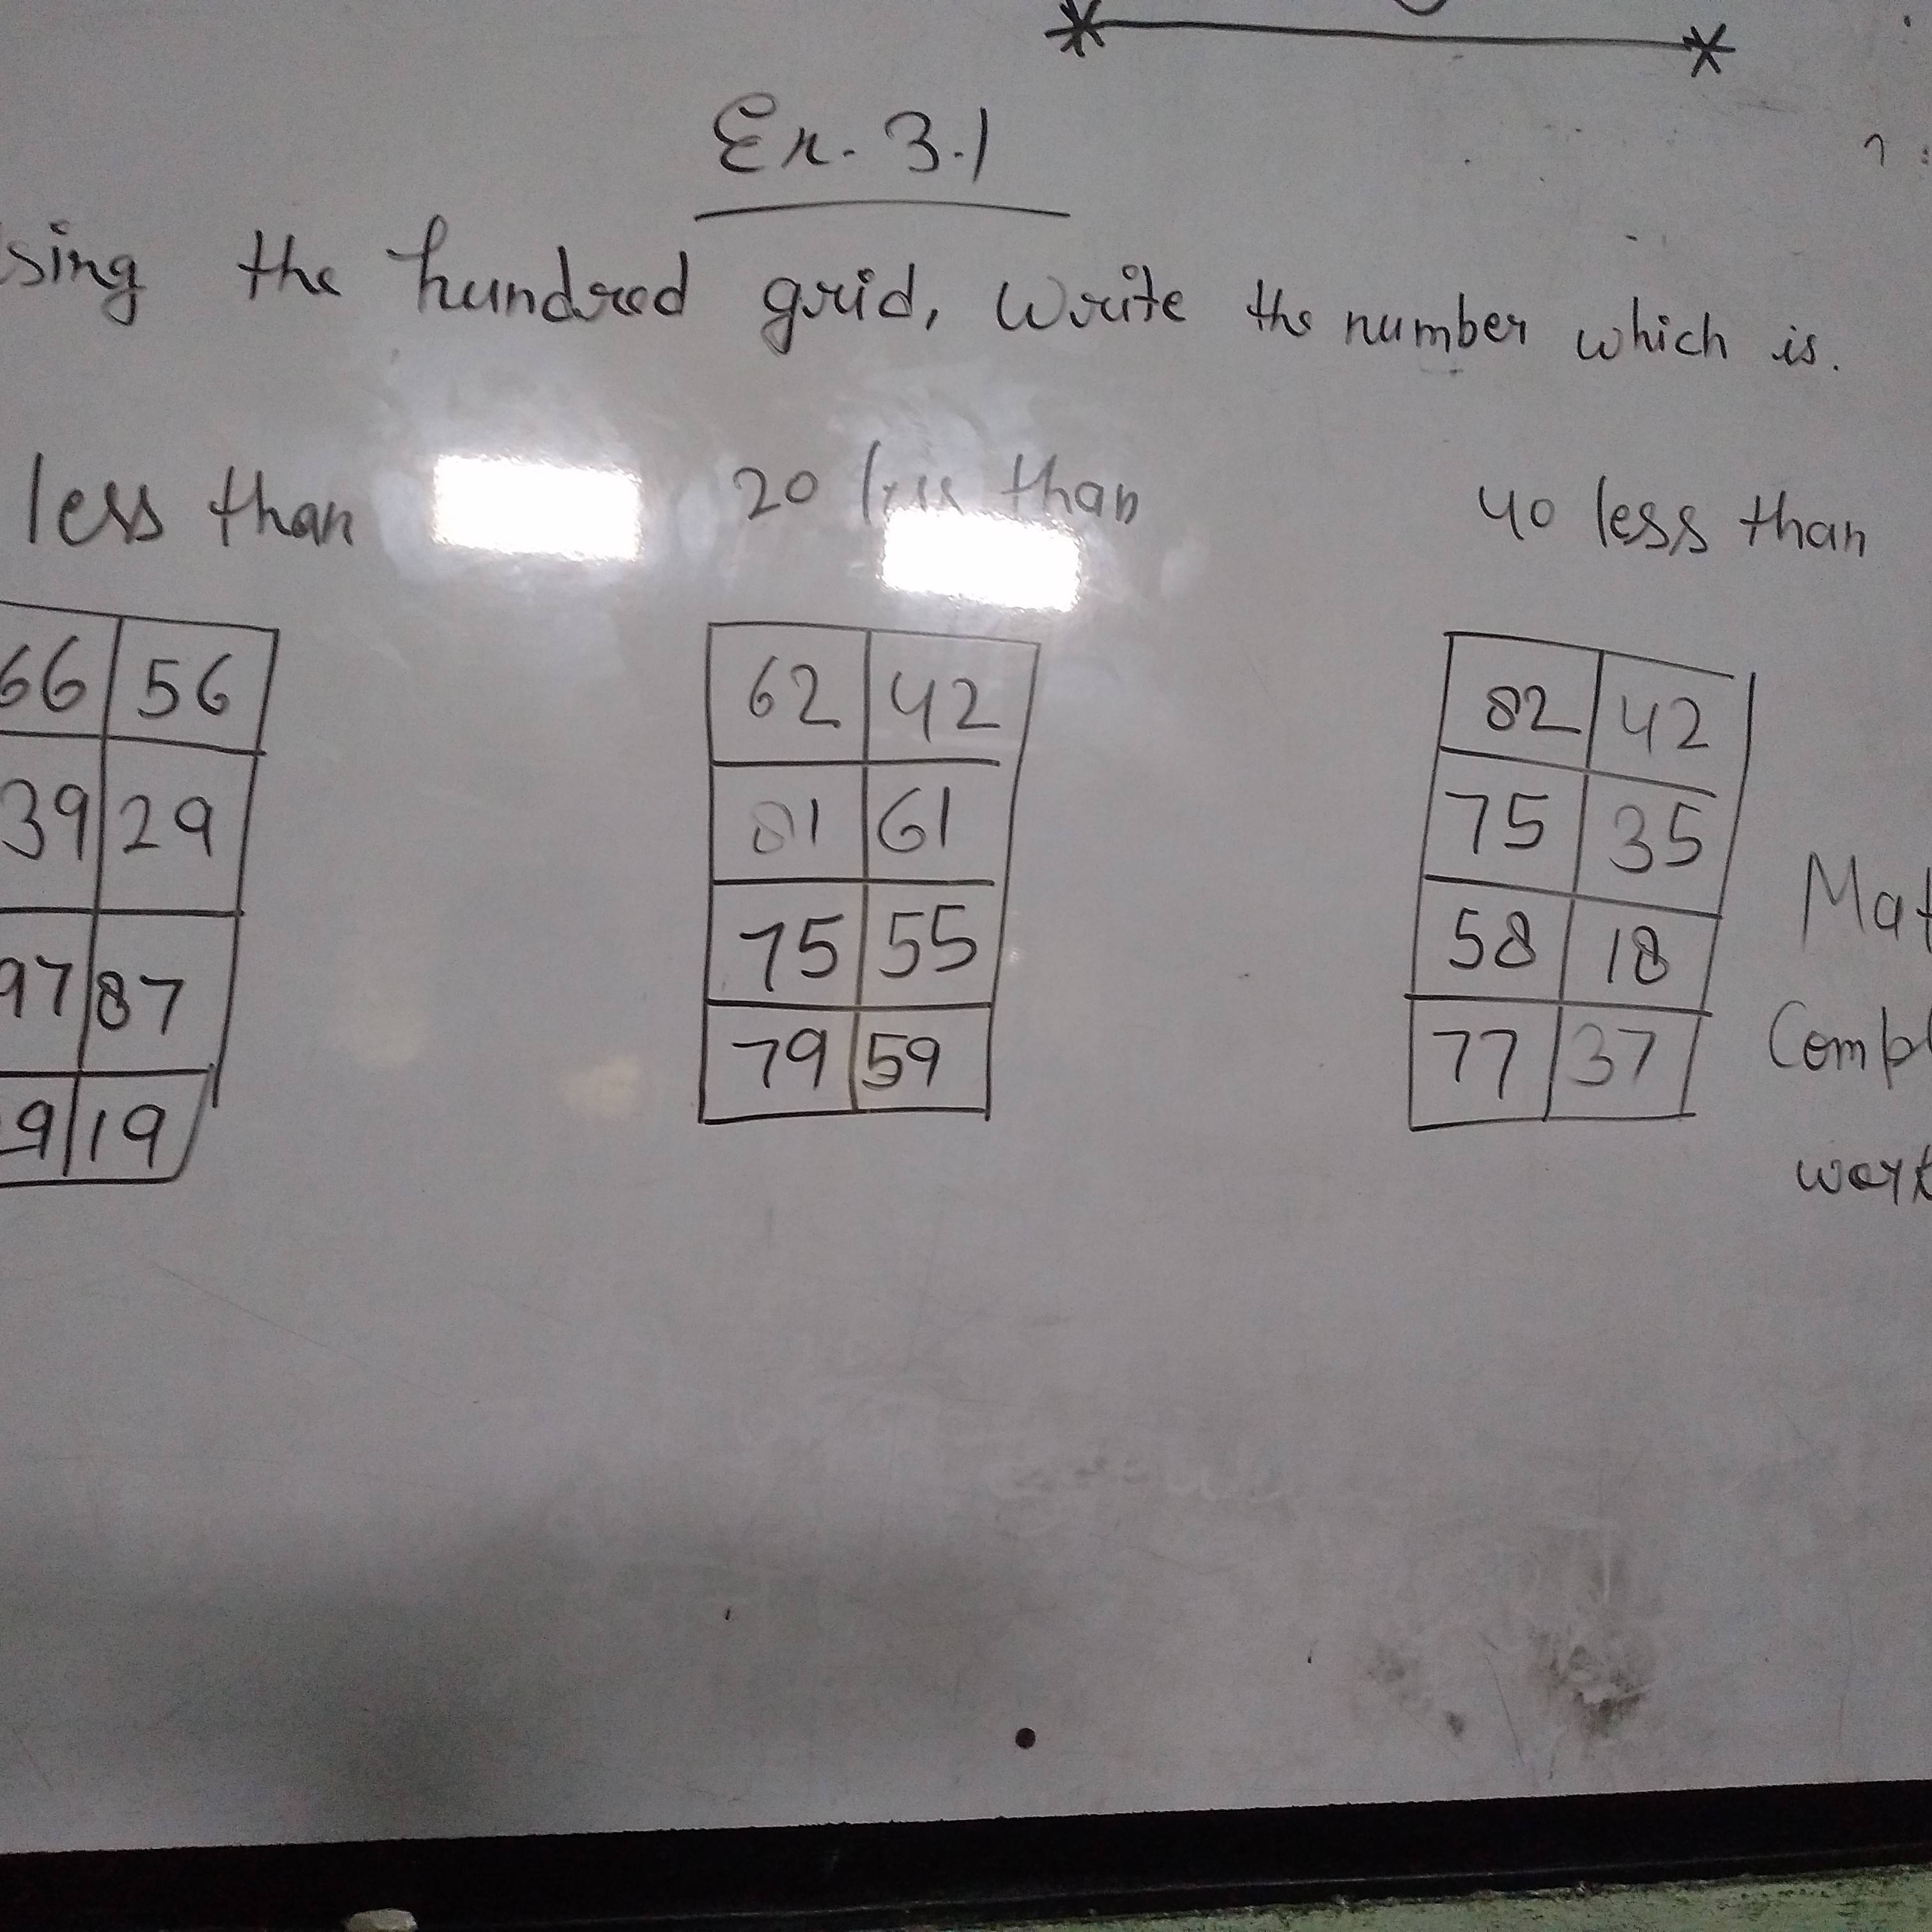 Ex. 3.1
sing the hundred grid, Write the number which is.
less than 20 less than 40 less than
66 56 62 42 82 42
39 29 81 61 75 35
97 87 75 55 58 18
9 19 79 59 77 37
Mat
Compl
work